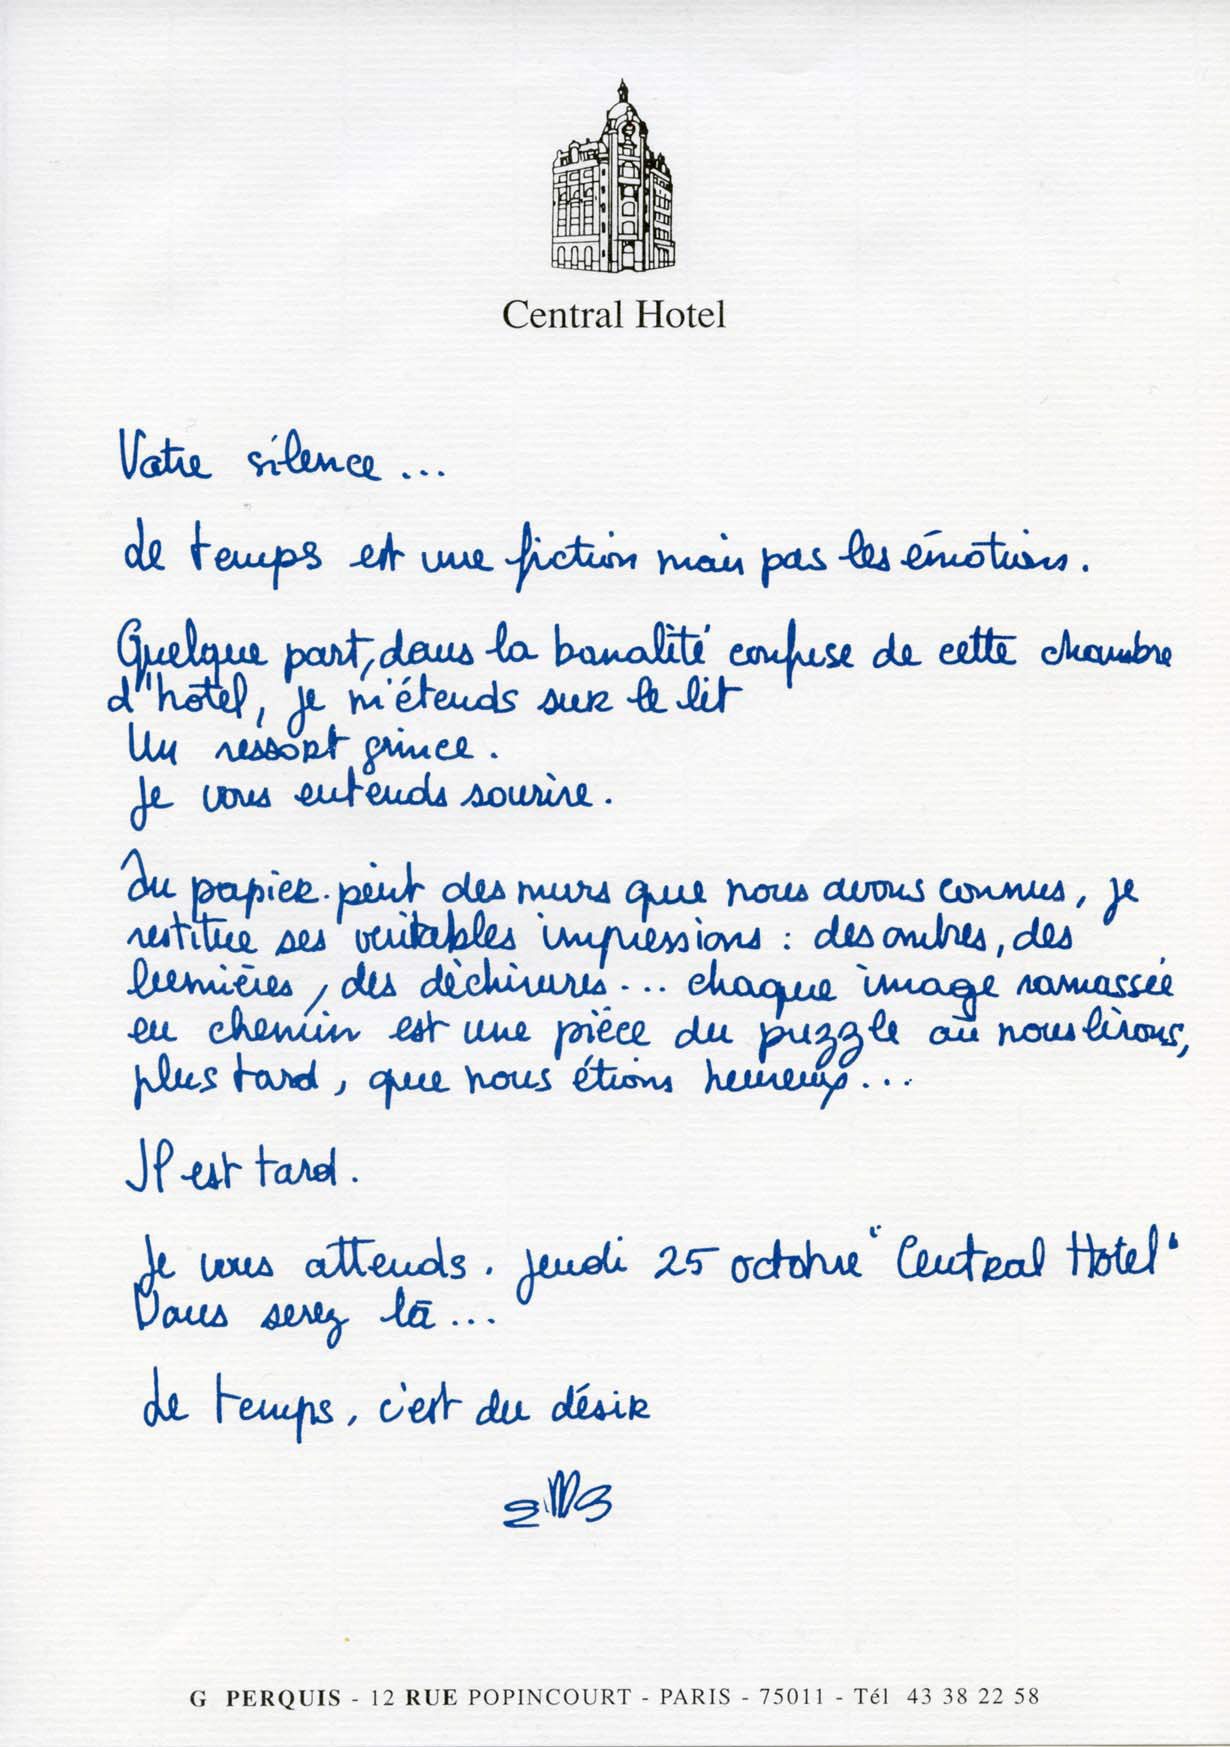 Central Hotel
Votre silence ...
Le temps est une fiction mais pas les émotions.
Quelque part, dans la banalité confuse de cette chambre
d'hôtel, je m'étends sur le lit
Un ressort grince.
Je vous entends sourire.
Du papier-peint des murs que nous avons connus, je
restitue ses véritables impressions : des ombres, des
lumières, des déchirures... chaque image ramassée
en chemin est une pièce du puzzle où nous lirons,
plus tard, que nous étions heureux...
Il est tard.
Je vous attends. Jeudi 25 octobre "Central Hotel"
Vous serez là...
Le temps, c'est du désir
G PERQUIS - 12 RUE POPINCOURT - PARIS - 75011 - Tél 43 38 22 58